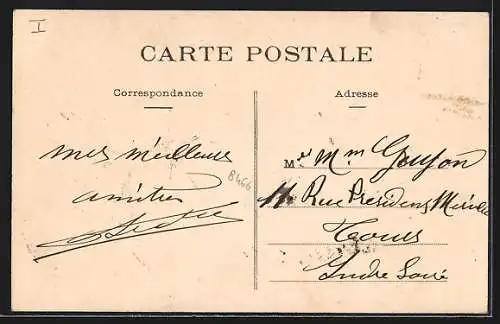 I
CARTE POSTALE
Correspondance
mes meilleures
amitiés
8466
Adresse
M. et Mme Goujon
11 Rue Président Merville
Tours
Indre Loire